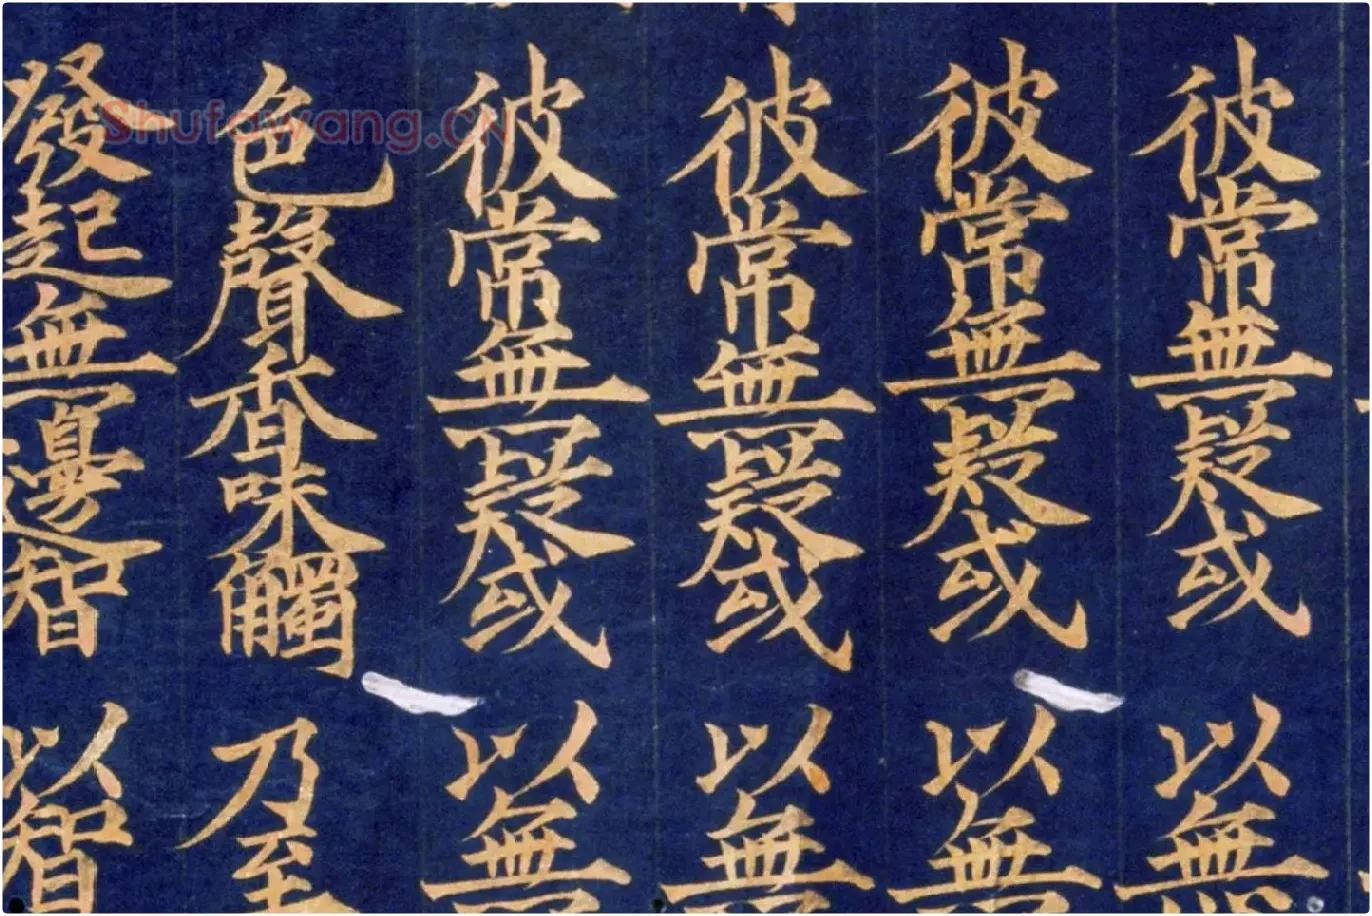 彼常無疑或 以無
彼常無疑或 以無
彼常無疑或 以無
彼常無疑或 以無
色聲香味觸 乃至
發起無邊智 以智
Shufawang.CN